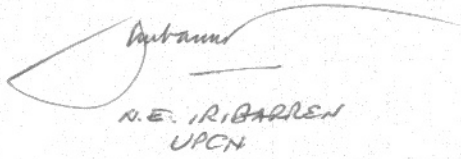 N.E. IRIBARREN
UPCN